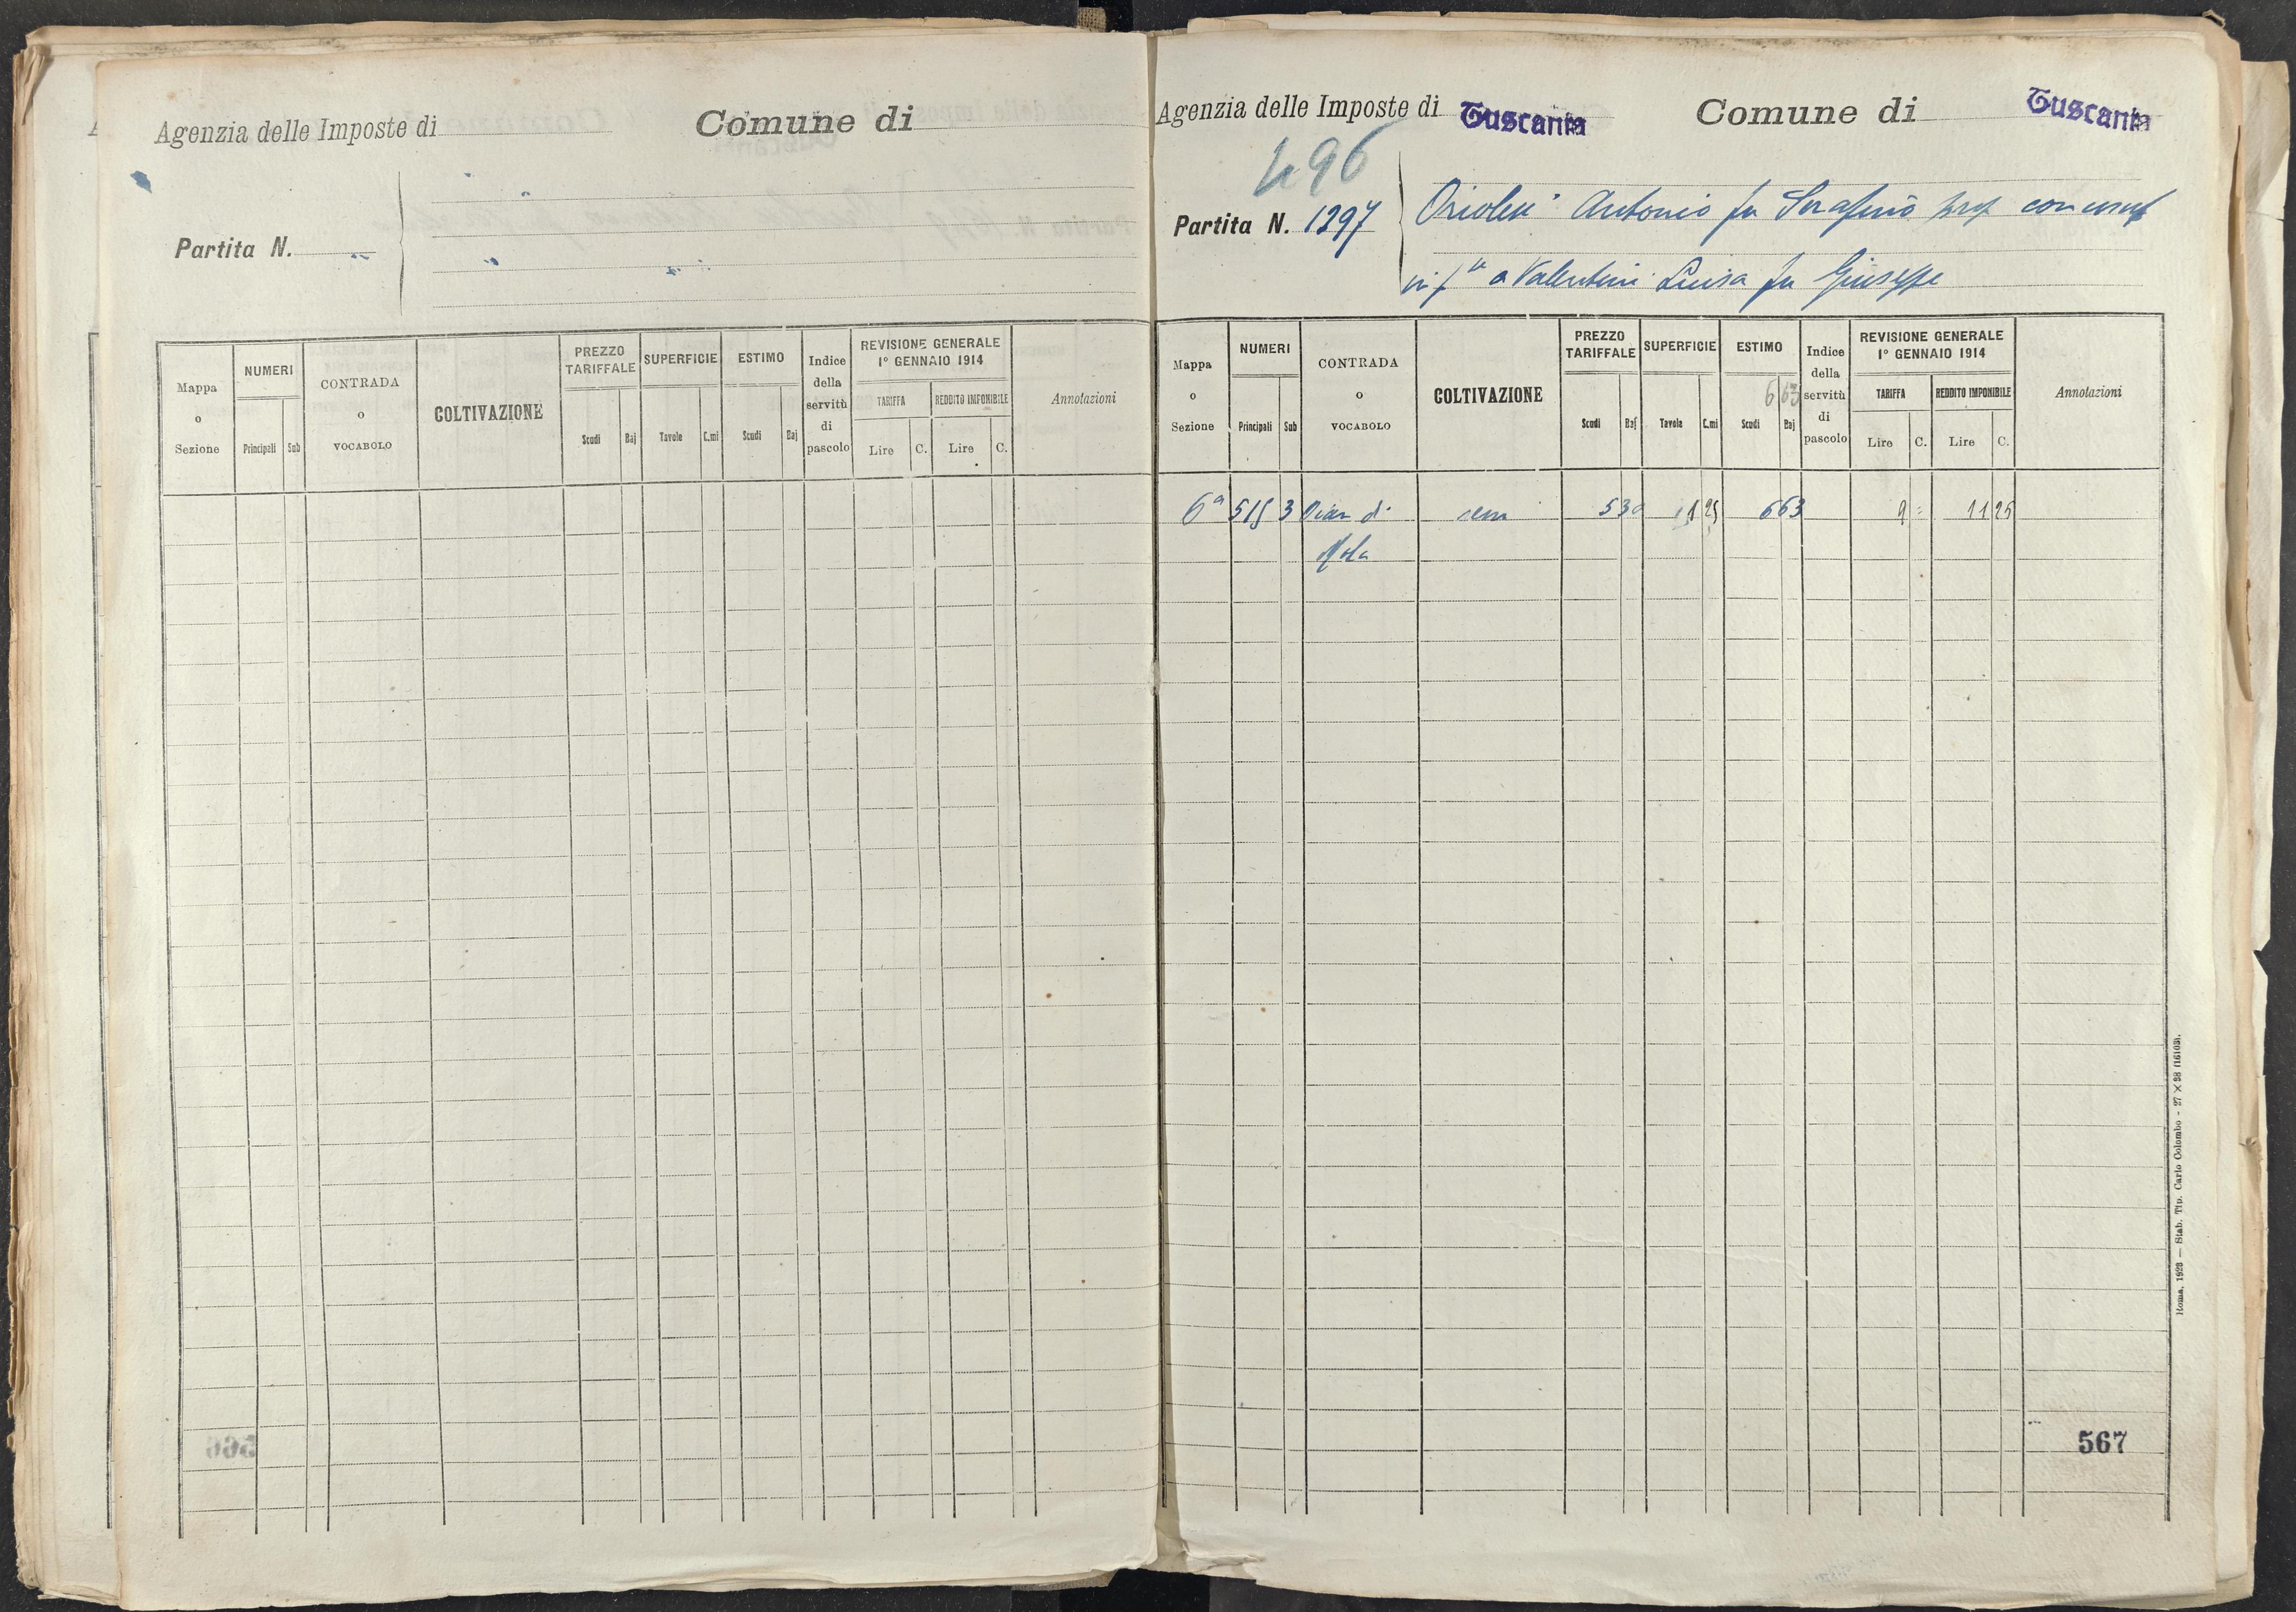 Agenzia delle Imposte di
Comune di
Partita N.
Mappa o Sezione
NUMERI
Principali Sub
CONTRADA o VOCABOLO
COLTIVAZIONE
PREZZO TARIFFALE
Scudi Baj
SUPERFICIE
Tavole C.mi
ESTIMO
Scudi Baj
Indice della servitù di pascolo
REVISIONE GENERALE
1° GENNAIO 1914
TARIFFA REDDITO IMPONIBILE
Lire C. Lire C.
Annotazioni
566
Agenzia delle Imposte di Tuscania
Comune di Tuscania
496
Partita N. 1297
Antonio fu Serafino
a Valentini Luisa fu Giuseppe
Mappa o Sezione
NUMERI
Principali Sub
CONTRADA o VOCABOLO
COLTIVAZIONE
PREZZO TARIFFALE
Scudi Baj
SUPERFICIE
Tavole C.mi
ESTIMO
663
Scudi Baj
Indice della servitù di pascolo
REVISIONE GENERALE
1° GENNAIO 1914
TARIFFA REDDITO IMPONIBILE
Lire C. Lire C.
Annotazioni
6a 515 3 Pian di sem 530 1 25 663 9 = 11 25
Mola
567
Roma, 1923 — Stab. Tip. Carlo Colombo - 27 × 38 (16103).